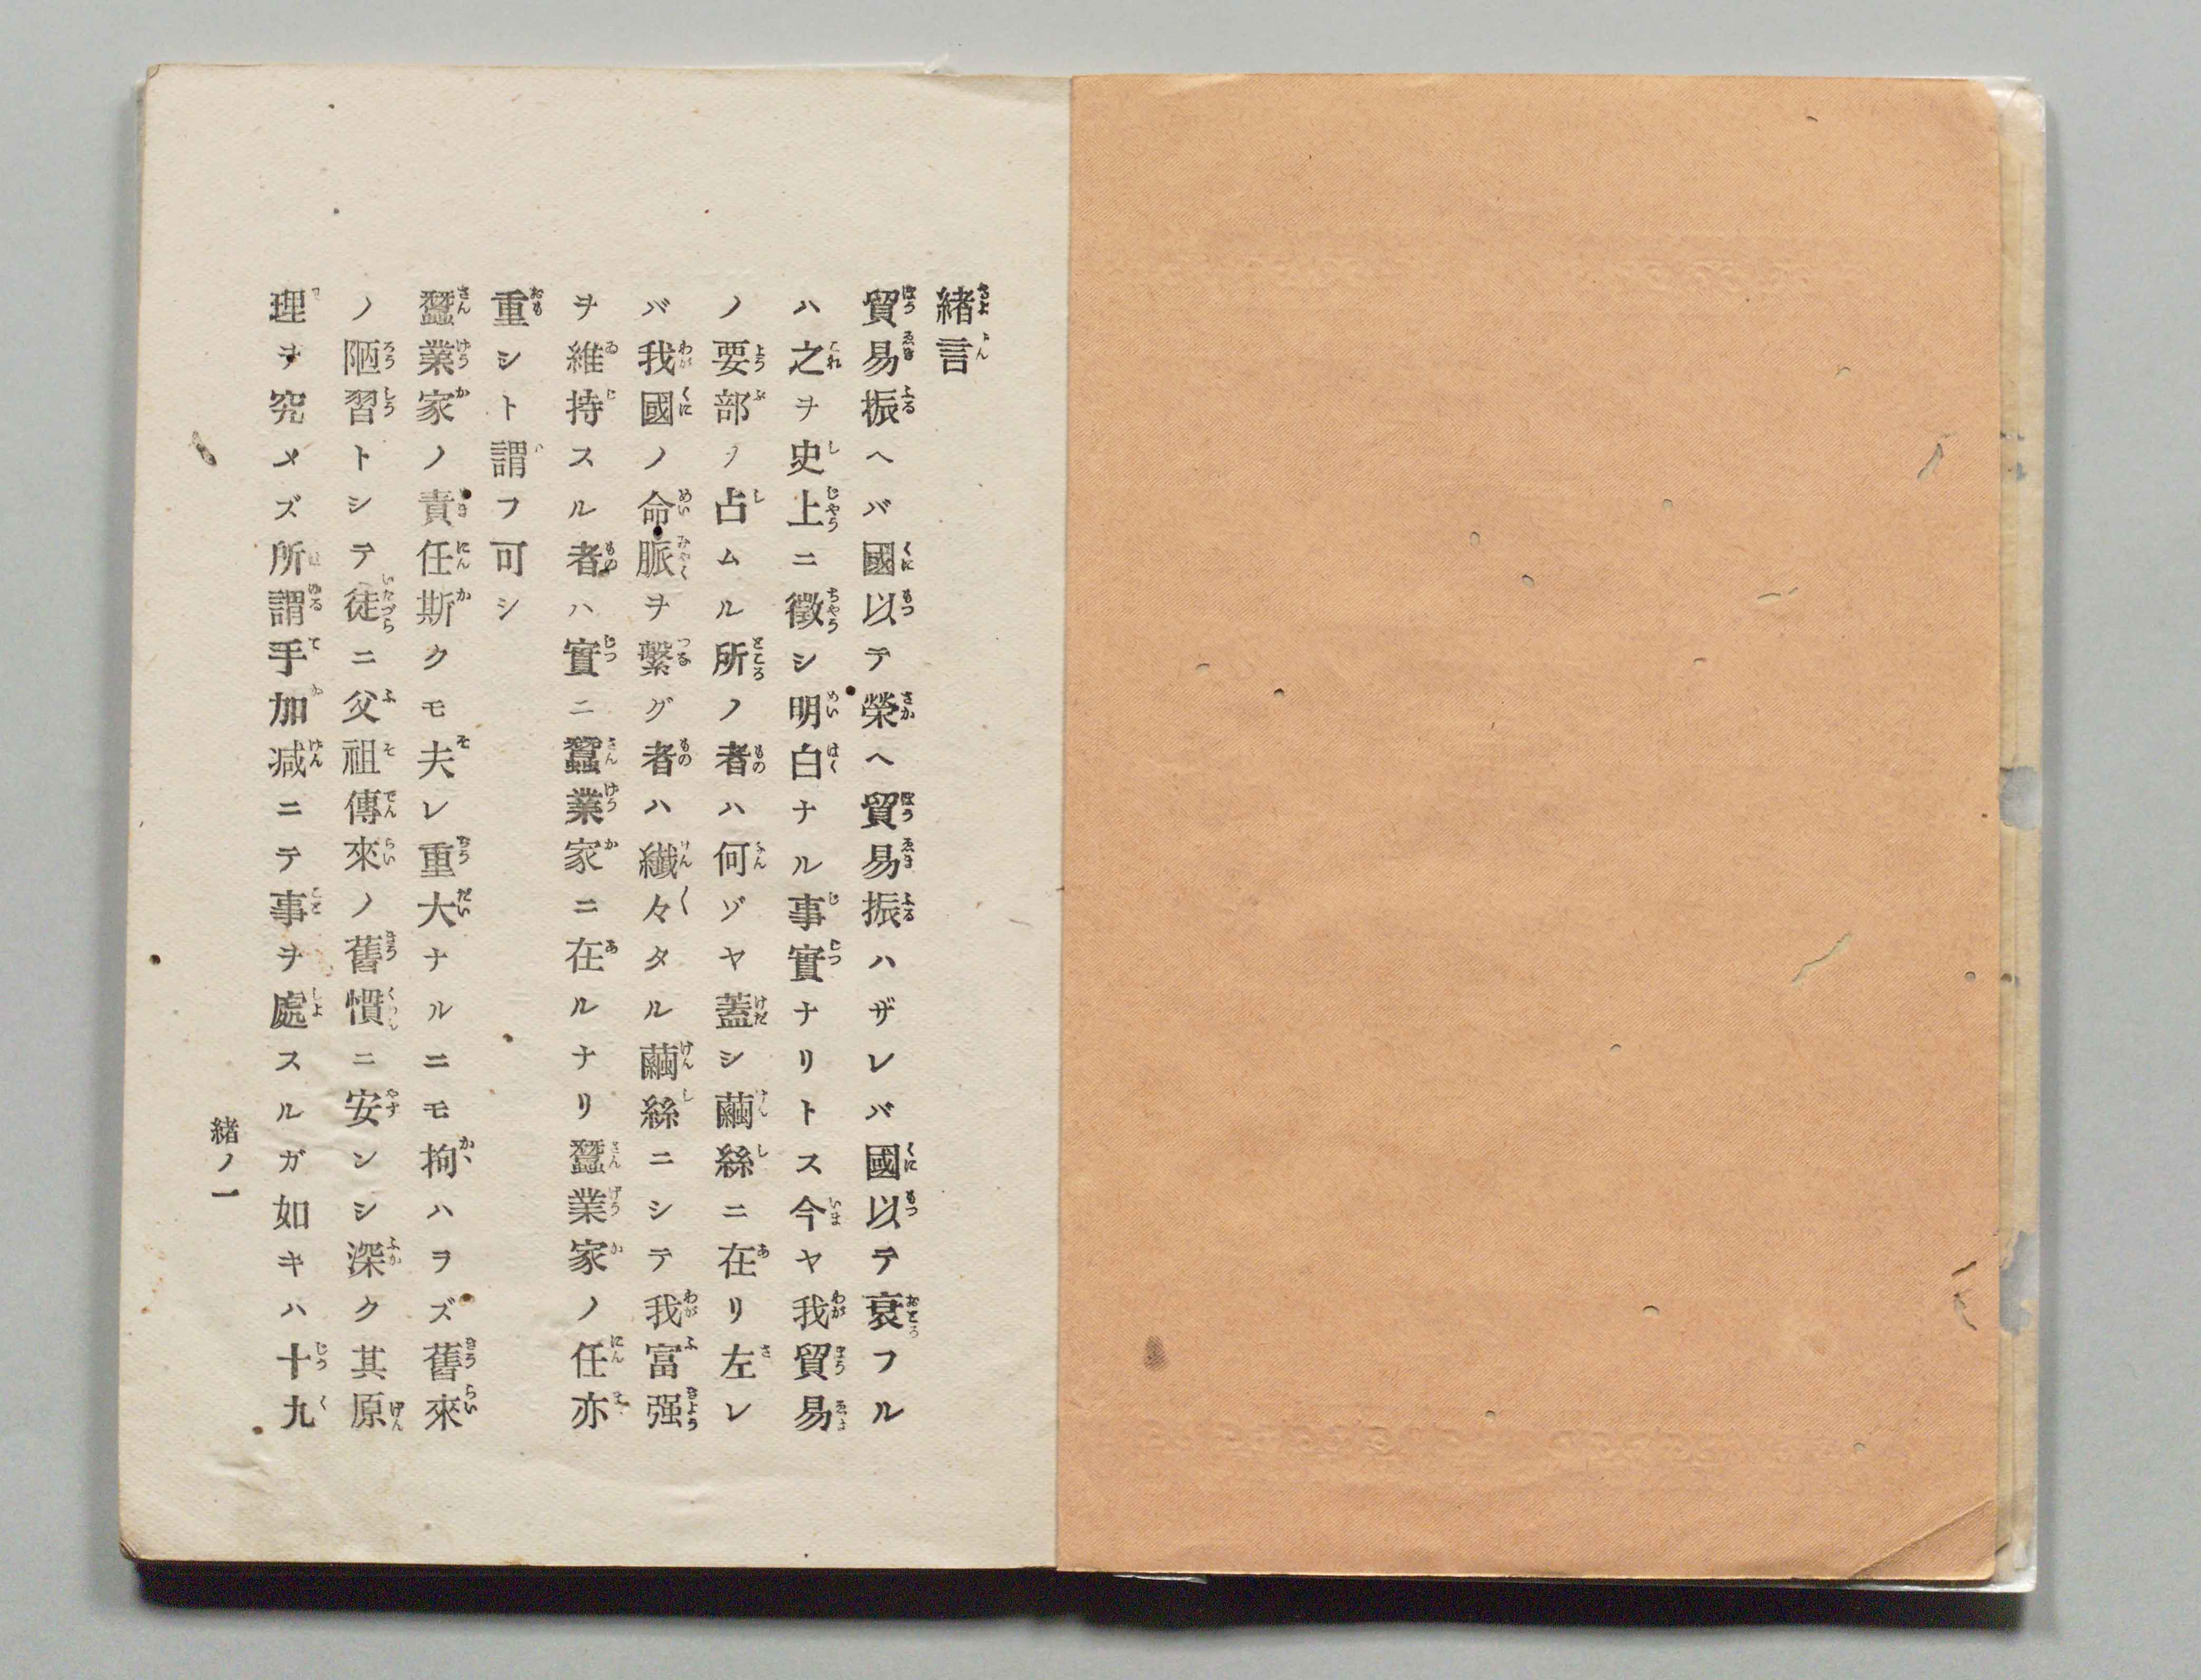 緒言
貿易振ヘバ國以テ榮ヘ貿易振ハザレバ國以テ衰フル
ハ之ヲ史上ニ徵シ明白ナル事實ナリトス今ヤ我貿易
ノ要部ノ占ムル所ノ者ハ何ゾヤ蓋シ繭絲ニ在リ左レ
バ我國ノ命脈ヲ繫グ者ハ纎々タル繭絲ニシテ我富强
ヲ維持スル者ハ實ニ蠶業家ニ在ルナリ蠶業家ノ任亦
重シト謂フ可シ
蠶業家ノ責任斯クモ夫レ重大ナルニモ拘ハラズ舊來
ノ陋習トシテ徒ニ父祖傳來ノ舊慣ニ安ンシ深ク其原
理ヲ究メズ所謂手加减ニテ事ヲ處スルガ如キハ十九
緒ノ一